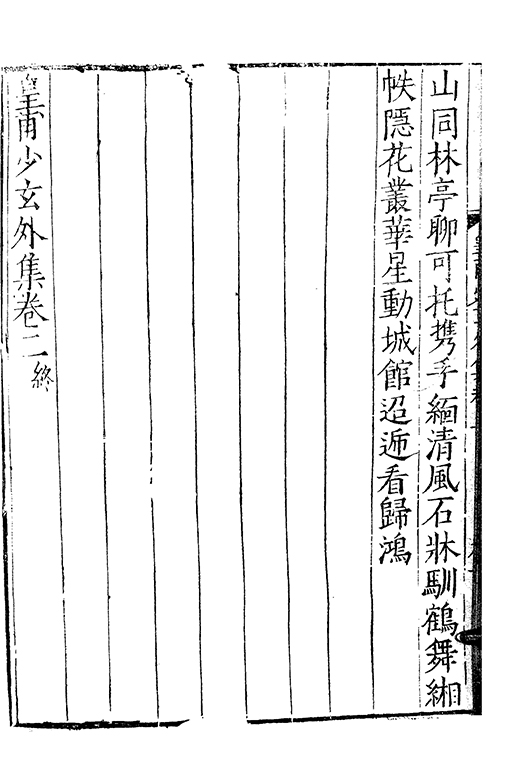 山同林亭聊可托攜手緬清風石牀馴鶴舞緗
帙隱花叢華星動城館迢遞看歸鴻
皇甫少玄外集卷二終